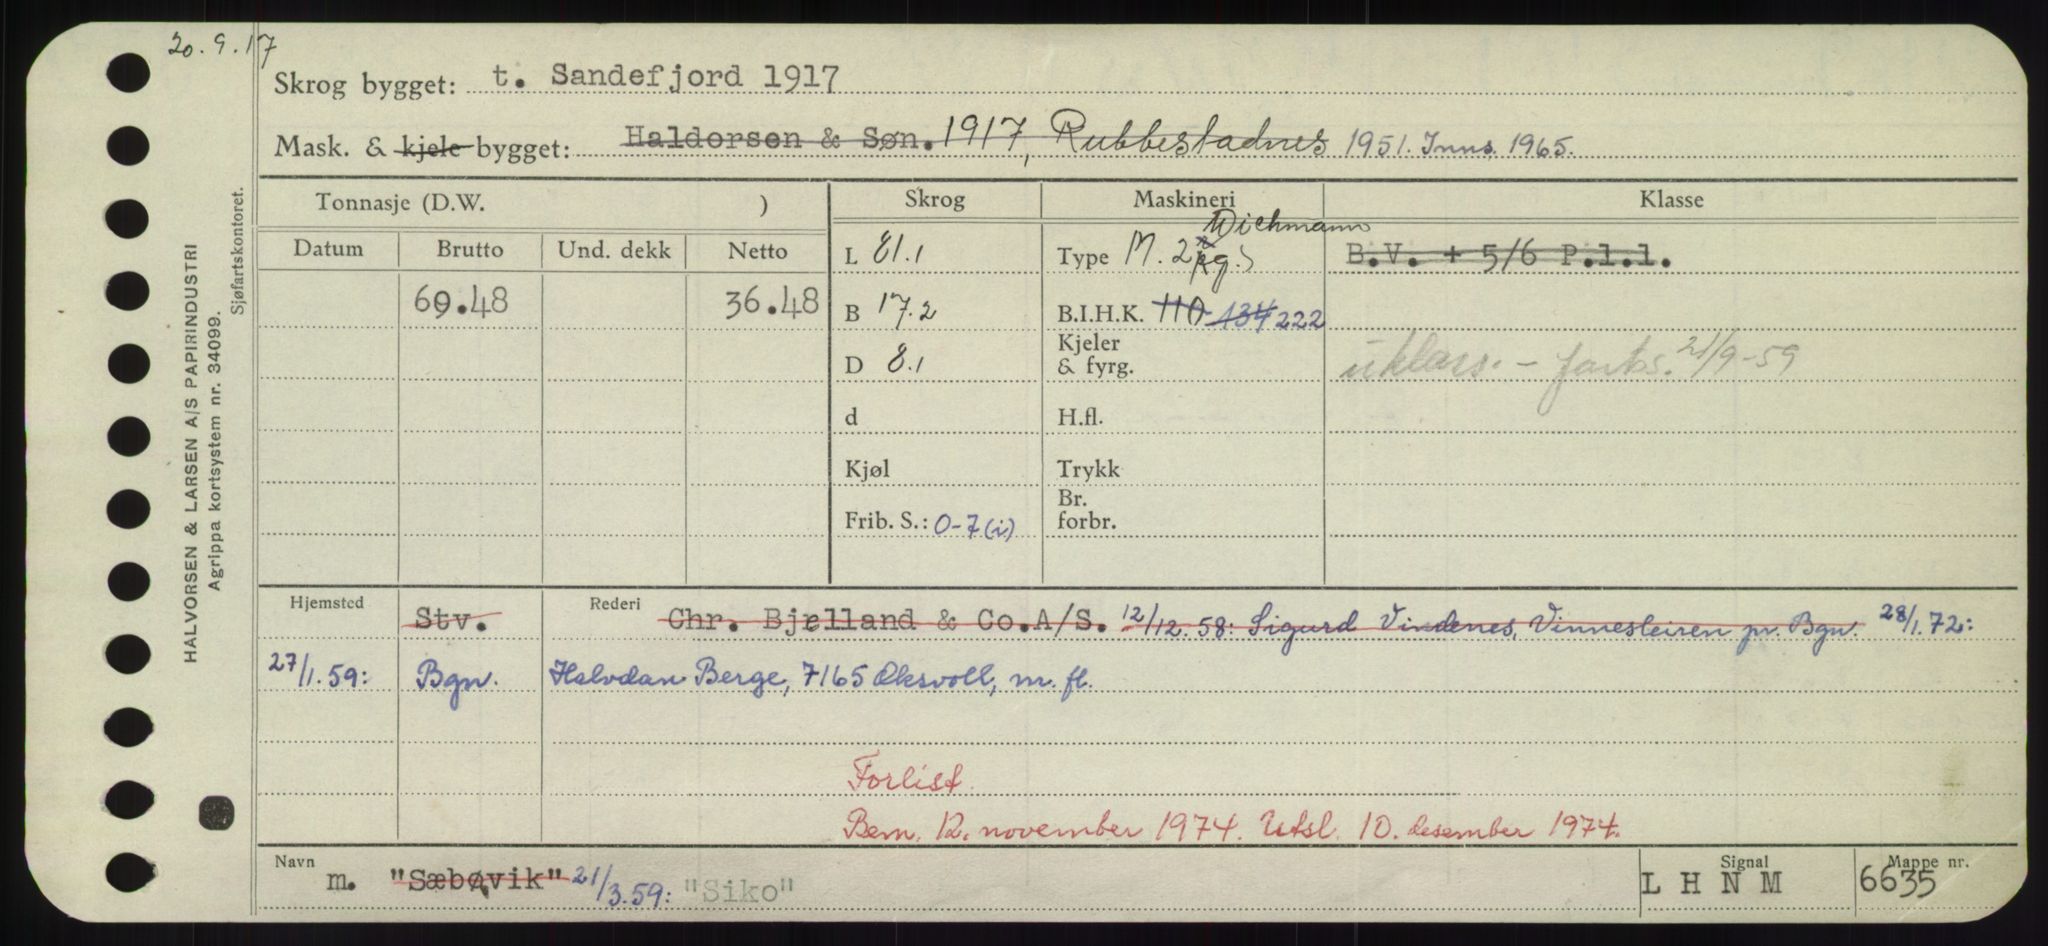 20.9.17
Skrog bygget: t. Sandefjord 1917
Mask. & kjele bygget: Haldorsen & Søn. 1917, Rubbestadnes 1951. Inns. 1965.
HALVORSEN & LARSEN A/S PAPIRINDUSTRI
Agrippa kortsystem nr. 34099.
Sjøfartskontoret.
Tonnasje (D.W. ) Skrog Maskineri Klasse
Datum Brutto Und. dekk Netto L 81.1 Type M. 2 Wichmann B.V. + 5/6 P.1.1.
69.48 36.48 B 17.2 B.I.H.K. 110 134 222
D 8.1 Kjeler & fyrg. uklass. - farts. 21/9-59
d H.fl.
Kjøl Trykk
Frib. S.: 0-7 (i) Br. forbr.
Hjemsted Stv. Rederi Chr. Bjelland & Co.A/S. 12/12.58: Sigurd Vindenes, Vinnesleiren pr. Bgn. 28/1.72:
27/1.59: Bgn. Halvdan Berge, 7165 Oksvoll, m. fl.
Forlist.
Bem. 12. november 1974. Utsl. 10. desember 1974.
Navn m. "Sæbøvik" 21/3.59: "Siko" Signal L H N M Mappe nr. 6635